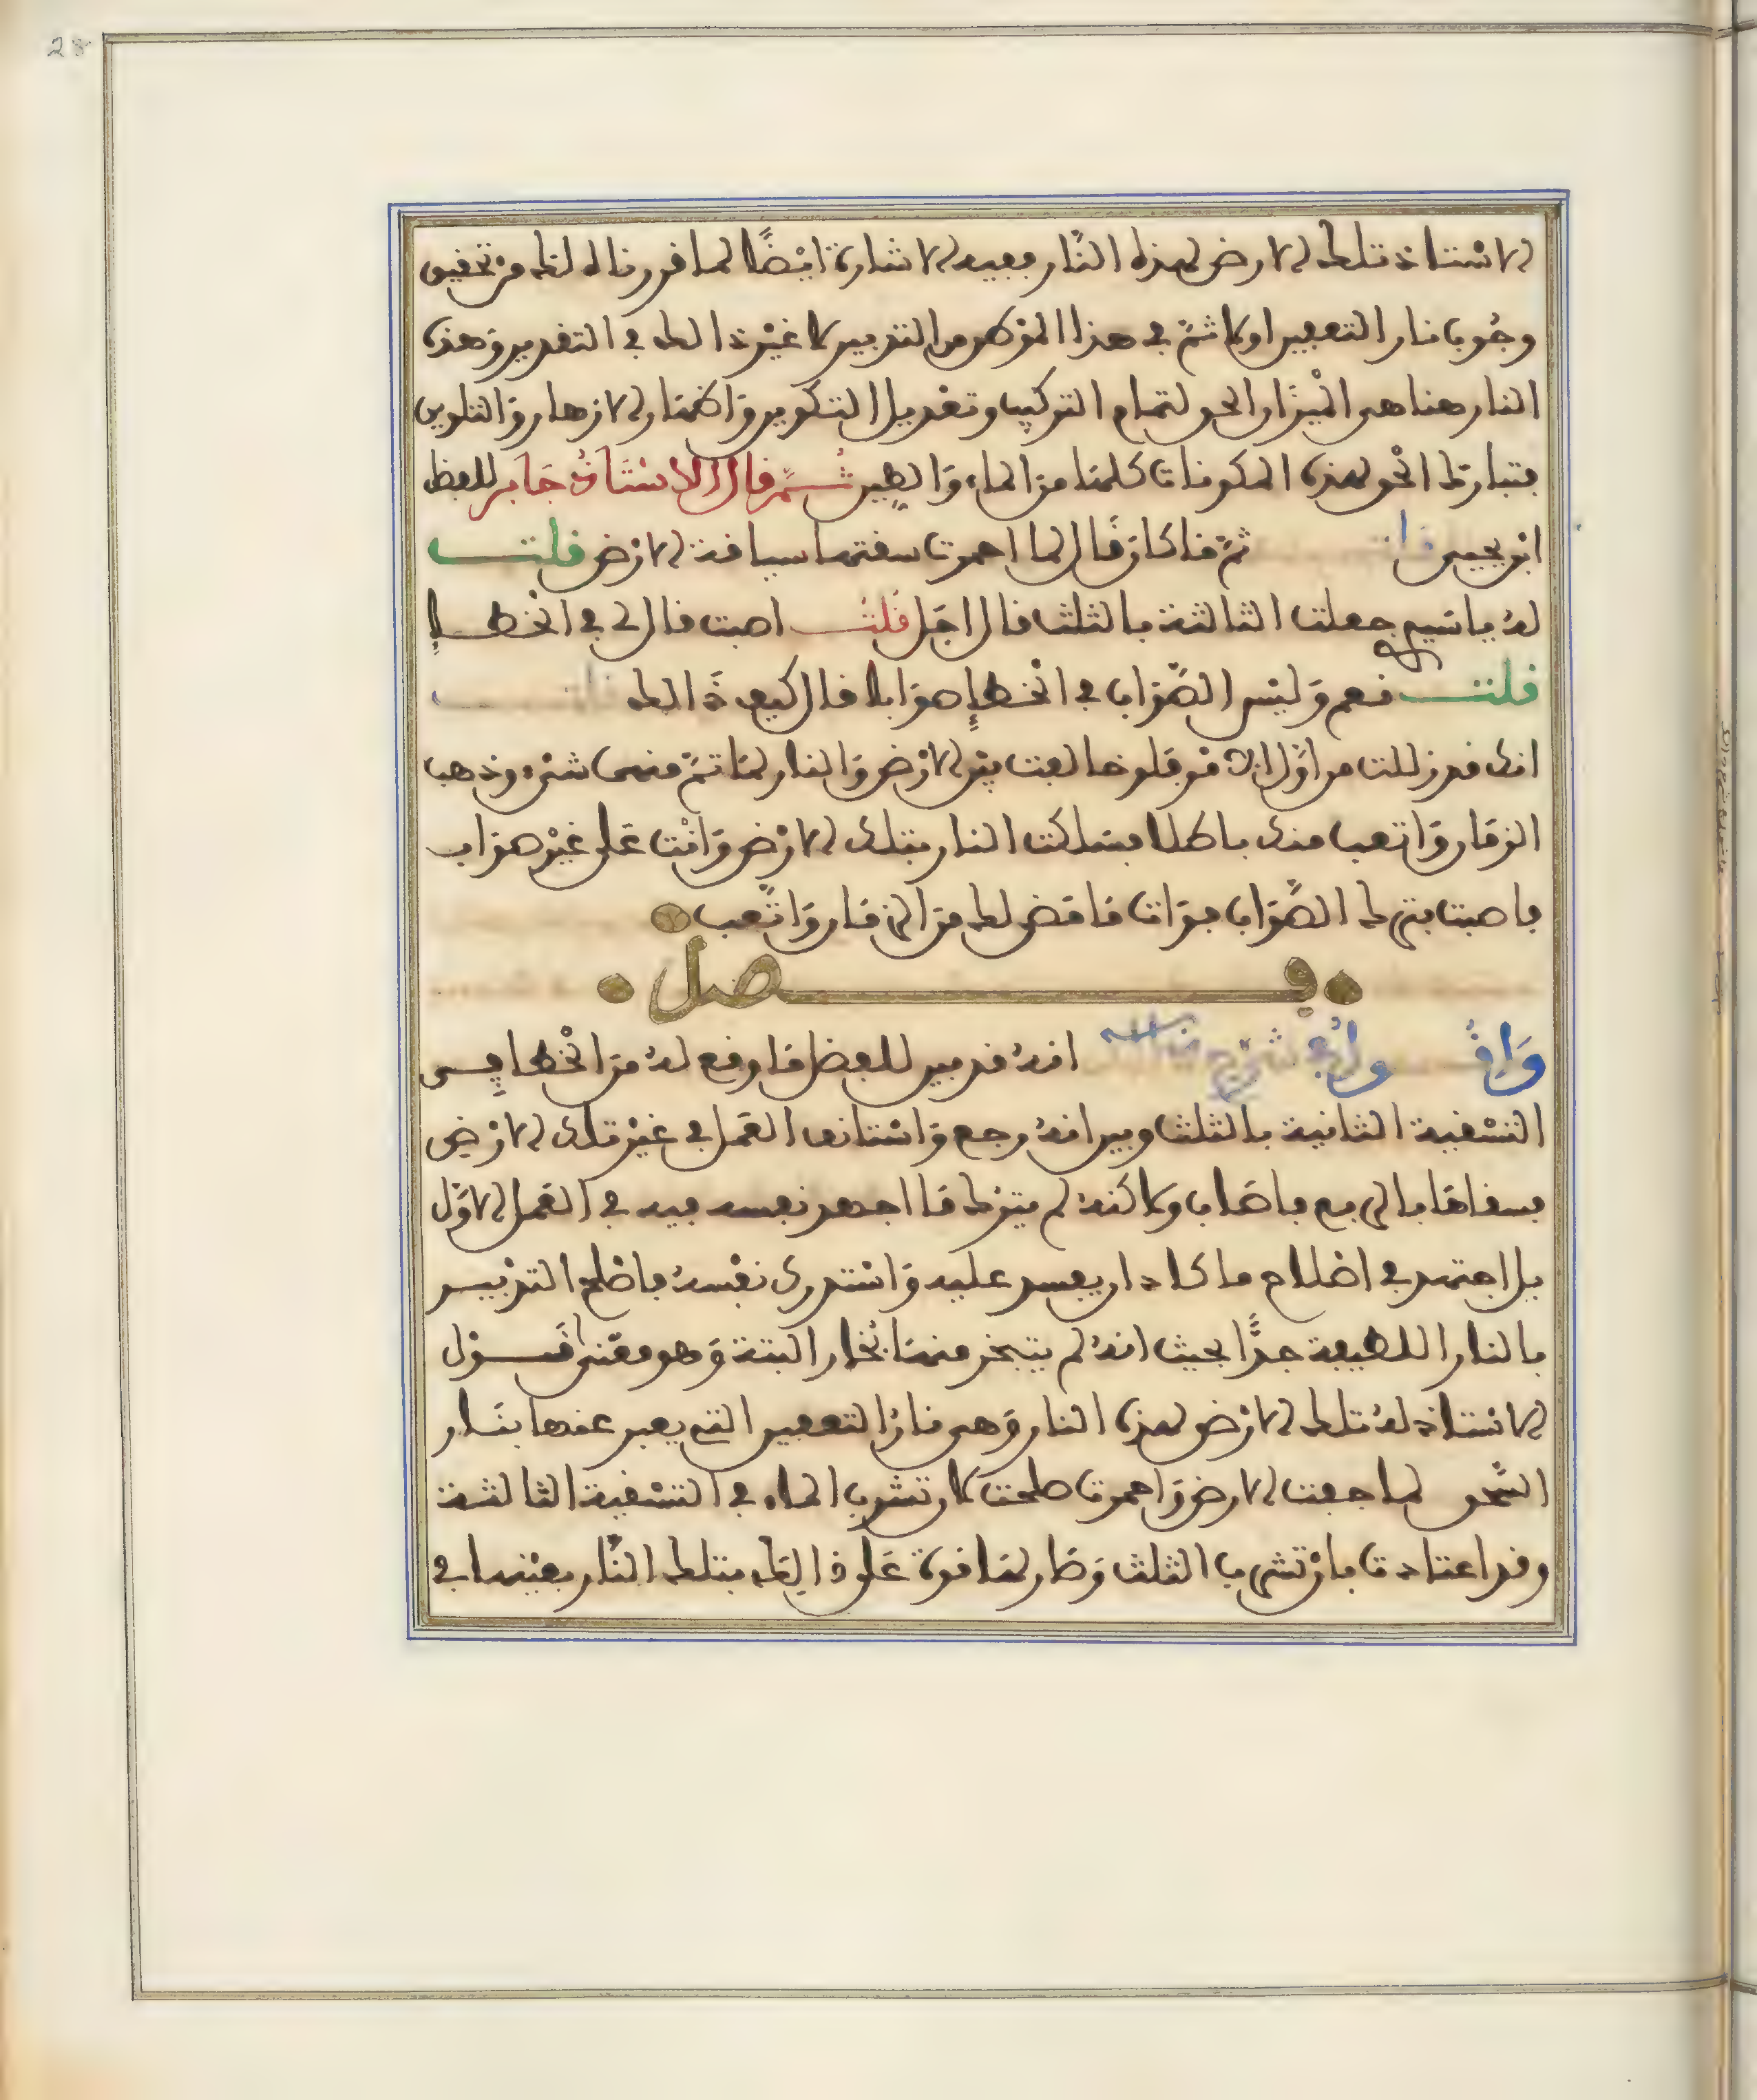 28
الاستاذ تلك الارض لهذه النّار ففيه الاشارة ايضًا لما قررناه لك من تحقيق
وجُوب نار التعفير اولا ثمّ في هذا الموطن من التدبير لا غير ذالك في التقدير وهذه
النار هنا هي الميزان الحق لتمام التركيب وتعديل التكوير والاظهار الازهار والتلوين
فتبارك الحق لهذه المكونات كلها من الماء والطين ثــمّ قال الاستاذ جابر للفظ
ابو يحيى ثمّ ماكان قال لما احمرت سقتها سياقة الارض قلت
لهُ ياشيخ جعلت الثالثة بالثلث قال اجل قلت اصبت قال لي في الخطإ
قلت نعم وليس الصّواب في الخطإ صوابا قال كيف ذالك
انك قد زللت من اوّل الامر فلو خالفت بين الارض والنار لما تمّ منها شيء وذهب
الزمان واتعب منك باطلا فسلكت النار بتلك الارض وانت على غير صواب
فاصبت بترك الصّواب فوات ما مضى لك من الزمان واتّعب
فصل
انهُ قد بين للفظ ما وقع لهُ من الخطا في
التسقية الثانية بالثلث وبين انهُ رجع واستانف العمل في غير تلك الارض
فسقاها بالربع فاصاب ولاكنهُ لم يترك ما اجهد نفسه فيه في العمل الاوّل
بل اجتهد في اصلاح ما كاد ان يفسد عليه واستدرك نفسهُ فاصلح التدبير
بالنار اللطيفة جدًّا بحيث انهُ لم يتبخر منها بخار البتة وهو معنى قــول
الاستاذ لهُ تلك الارض لهذه النار وهي نارُ التعفير التي يعبر عنها بنــار
السّحق لما جفت الارض واحمرت صلحت لان تشرب الماء في التسقية الثالثة
وقد اعتادت بان تشرب الثلث وصار لها قوة على ذالك بتلك النّار بعينها في